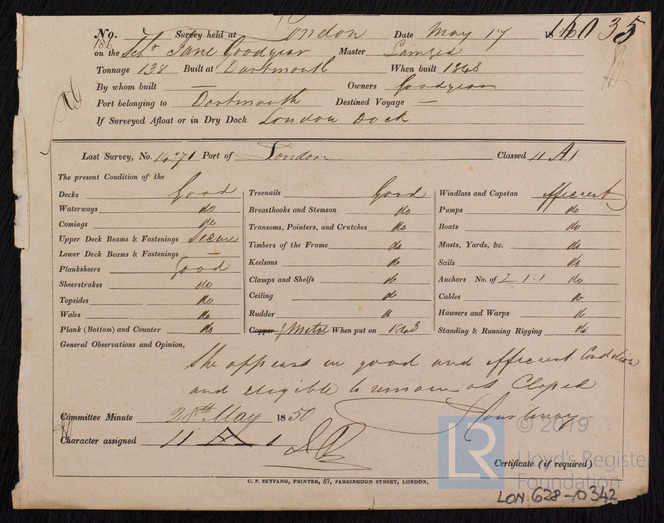 No. 186 Survey held at London Date May 17 18 16035
on the Schr Jane Goodyear Master
Tonnage 138 Built at Dartmouth When built 1848
By whom built — Owners Goodyear
Port belonging to Dartmouth Destined Voyage —
If Surveyed Afloat or in Dry Dock London Dock
Last Survey, No. Port of London Classed 11 A1
The present Condition of the
Decks Good Treenails Good Windlass and Capstan efficient
Waterways do Breasthooks and Stemson do Pumps do
Comings do Transoms, Pointers, and Crutches do Boats do
Upper Deck Beams & Fastenings Secure Timbers of the Frame do Masts, Yards, &c. do
Lower Deck Beams & Fastenings — Keelsons do Sails do
Planksheers Good Clamps and Shelfs do Anchors No. of 2.1.1 do
Sheerstrakes do Ceiling do Cables do
Topsides do Rudder do Hawsers and Warps do
Wales do Copper Y Metal When put on 1848 Standing & Running Rigging do
Plank (Bottom) and Counter do
General Observations and Opinion,
She appears in good and efficient Condition
and eligible to remain as Classed
Committee Minute 28th May 1850
Character assigned 11 A 1
Certificate (if required)
C. F. SEYFANG, PRINTER, 57, FARRINGDON STREET, LONDON.
© 2019
LR Lloyd's Register
Foundation
LON 628-0342